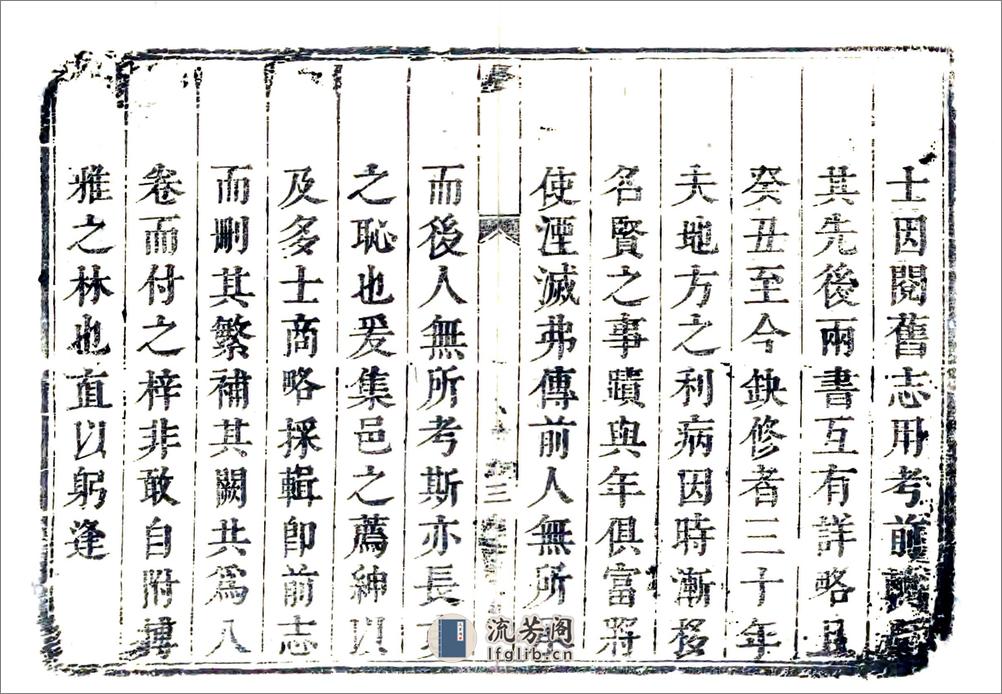 士因閱舊志用考前
其先後兩書互有詳略且
癸丑至今缺修者三十年
夫地方之利病因時漸移
名賢之事蹟與年俱富將
使湮滅弗傳前人無所
三
而後人無所考斯亦長
之恥也爰集邑之薦紳以
及多士商略採輯卽前志
而刪其繁補其闕共爲八
卷而付之梓非敢自附博
雅之林也直以躬逢
流芳阁
lfglib.cn